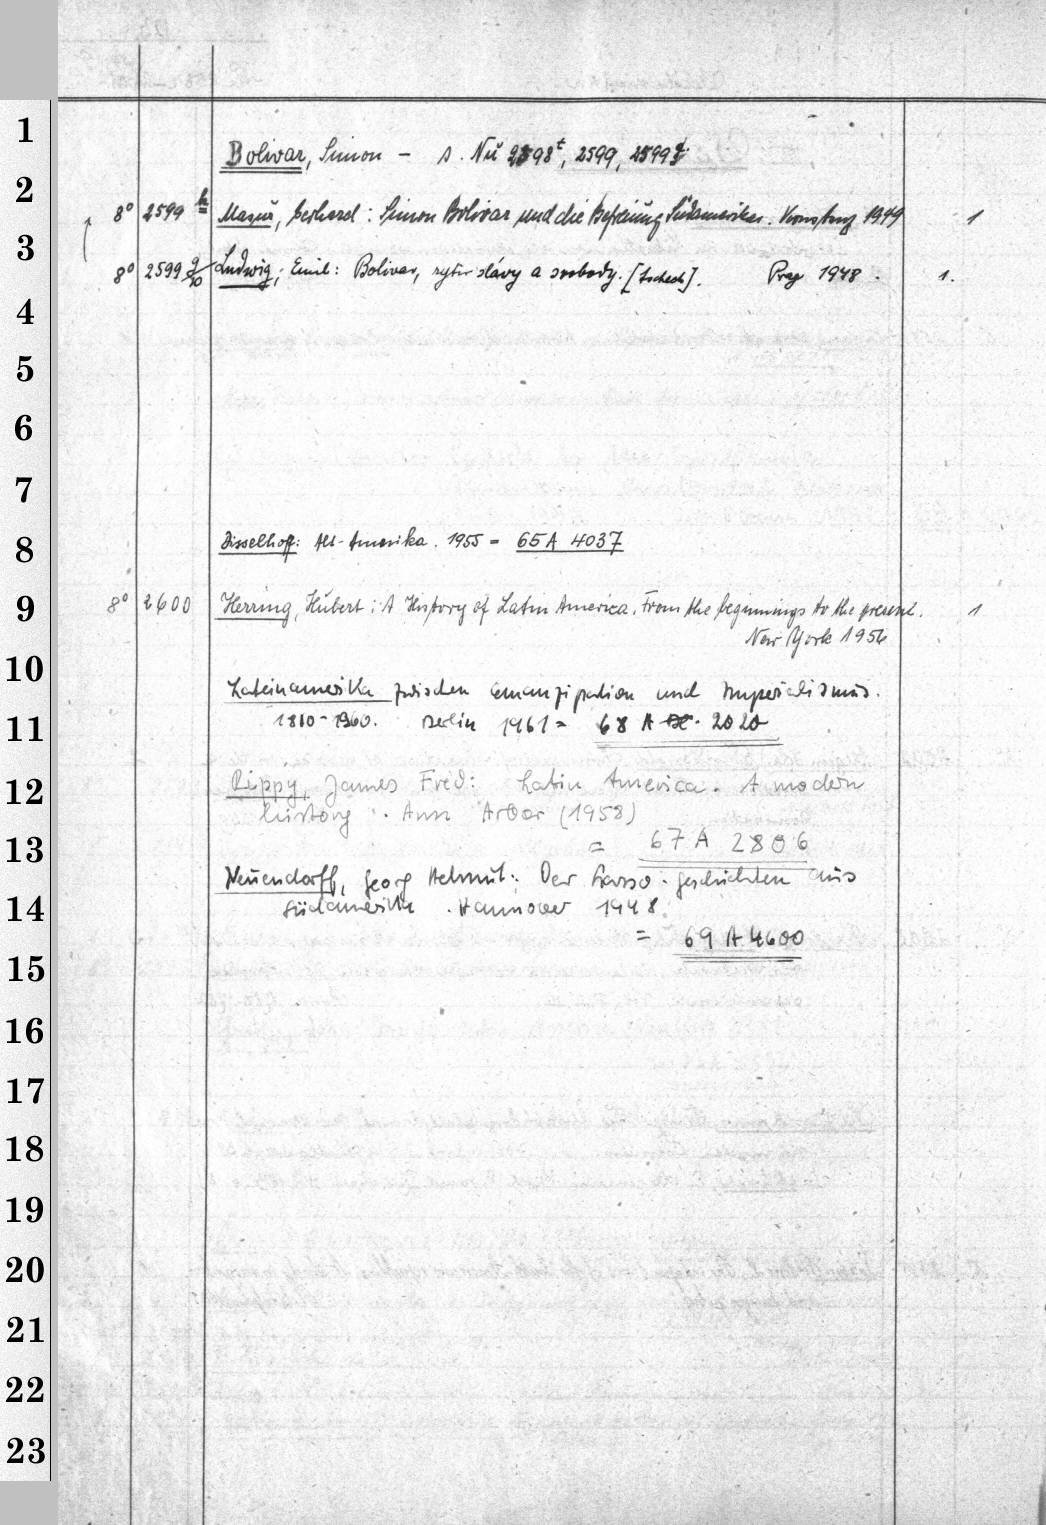 1
Bolivar, Simon – s. Nŭ 2598ᵗ, 2599, 2599ᵍ
2
8° 2599 h Masur, Gerhard: Simon Bolivar und die Befreiung Südamerikas. Konstanz 1949 1
3
8° 2599 g/10 Ludwig, Emil: Bolivar, rytir slávy a svobody. [tschech]. Prag 1948. 1.
4
5
6
7
8
Disselhoff: Alt-Amerika. 1955 = 65 A 4037
9
8° 2600 Herring, Hubert: A History of Latin America. From the beginnings to the present. 1
New York 1956
10
Lateinamerika zwischen Emanzipation und Imperialismus.
11
1810-1960. Berlin 1961 = 68 A 2020
12
Rippy, James Fred: Latin America. A modern
history. Ann Arbor (1958)
13
= 67 A 2806
Neuendorff, Georg Helmut: Der Geschichten aus
14
Südamerika. Hannover 1948.
= 69 A 4600
15
16
17
18
19
20
21
22
23